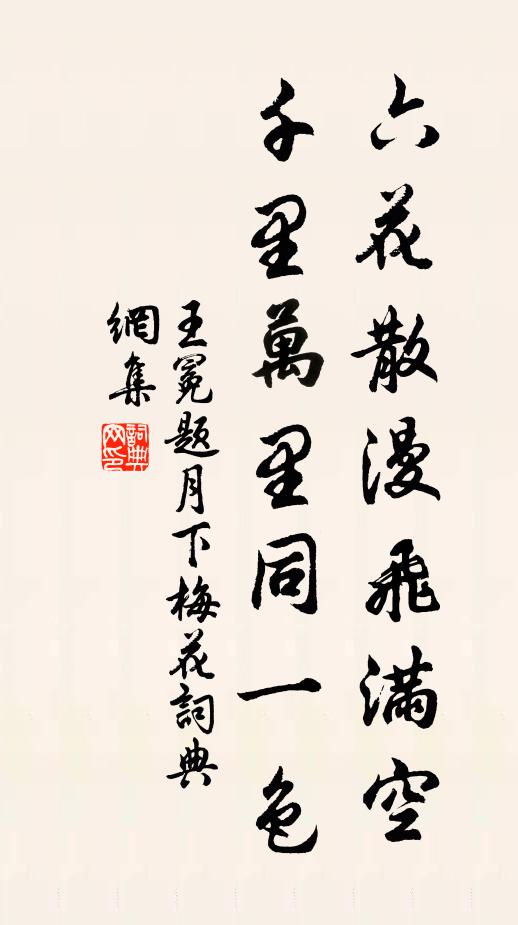 六花散漫飛滿空
千里萬里同一色
王冕題月下梅花詞典
網集
詞典網印